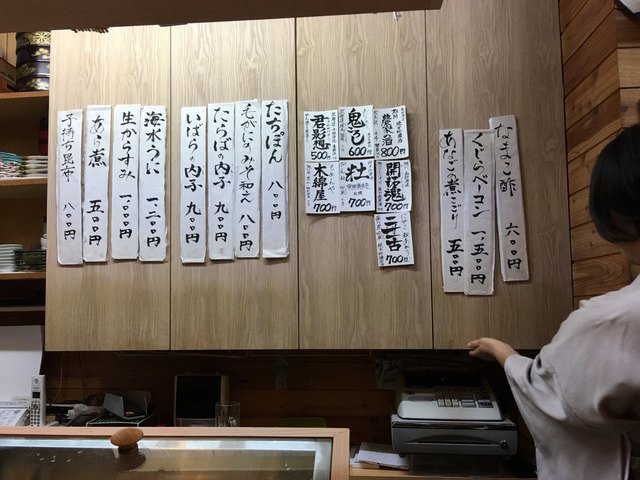 なまこ酢 六〇〇円
くじらベーコン 一、五〇〇円
あなごの煮こごり 五〇〇円
農家の酒
800円
鬼ごし
600円
君影想
500円
開拓魂
700円
700円
木綿屋
700円
二世古
700円
たちぽん 八〇〇円
毛がにのみそ和え 八〇〇円
たらばの内子 九〇〇円
いばらの内子 九〇〇円
海水うに 一、二〇〇円
生からすみ 一、〇〇〇円
あら煮 五〇〇円
子持ち昆布 八〇〇円